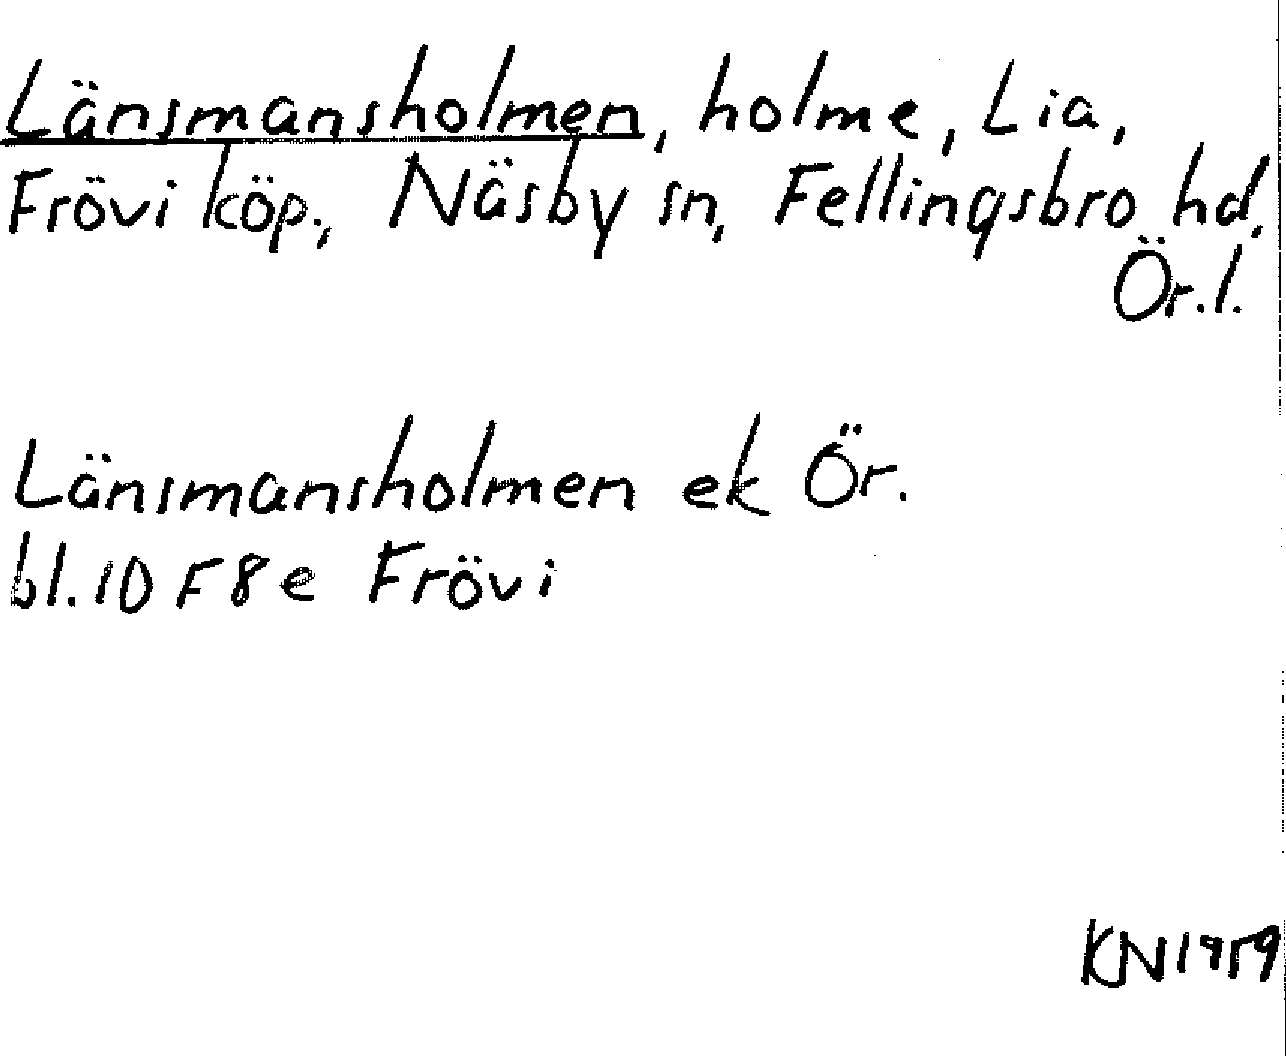 Länsmansholmen, holme, Lia,
Frövi köp., Näsby sn, Fellingsbro hd,
Ör.l.
Länsmansholmen ek Ör.
bl.10 F 8 e Frövi
KN 1959